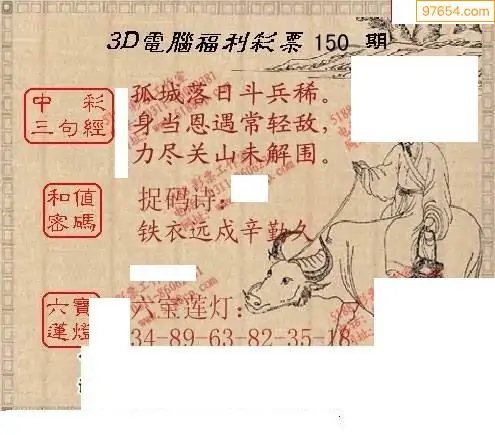 97654.com
3D電腦福利彩票 150 期
中彩
三句經
孤城落日斗兵稀。
身当恩遇常轻敌,
力尽关山未解围。
和值
密碼
捉码诗:
铁衣远戍辛勤久
六寶
蓮燈
六宝莲灯:
34-89-63-82-35-18